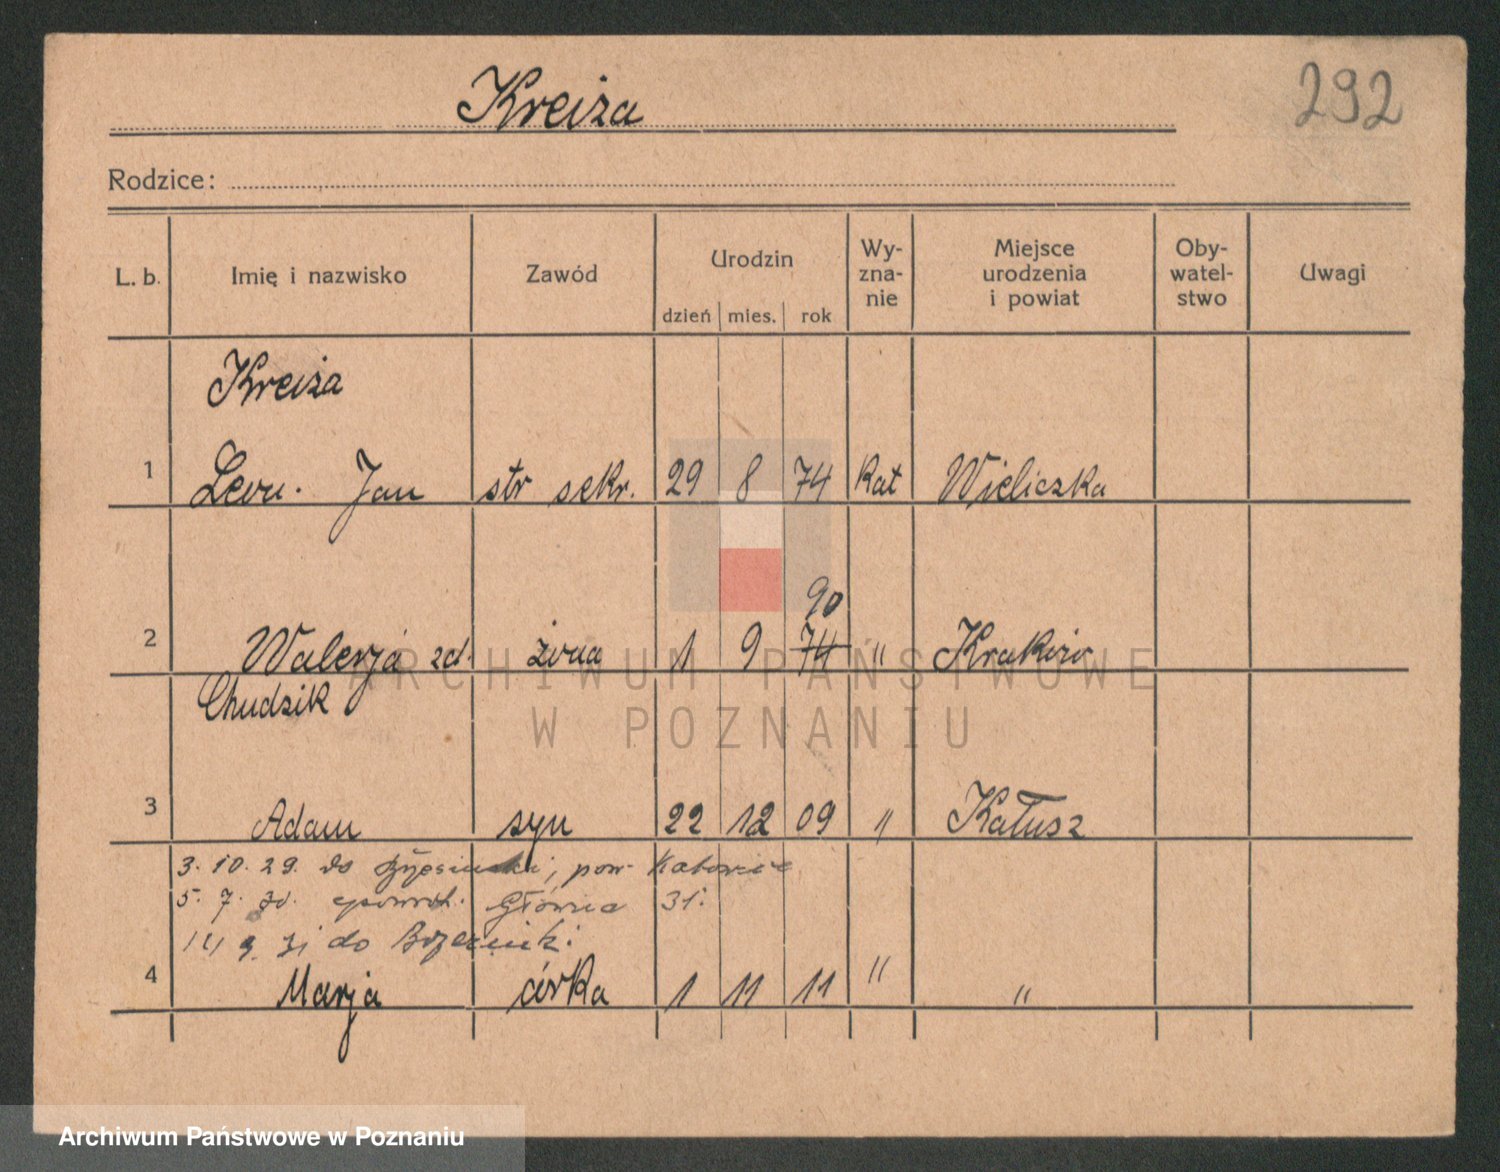 Kreiża
292
Rodzice:
L. b. Imię i nazwisko Zawód Urodzin Wy-zna-nie Miejsce urodzenia i powiat Oby-watel-stwo Uwagi
dzień mies. rok
Kreiża
1 Leon. Jan str sekr. 29 8 74 Kat Wieliczka
90
2 Walerja zd. żona 1 9 74 " Kraków
Chudzik
3 Adam syn 22 12 09 " Kałusz
3. 10. 29. do pow. Katowice
5. 7. 30. Główna 31.
9. 31 do
4 Marja córka 1 11 11 " "
ARCHIWUM PAŃSTWOWE
W POZNANIU
Archiwum Państwowe w Poznaniu